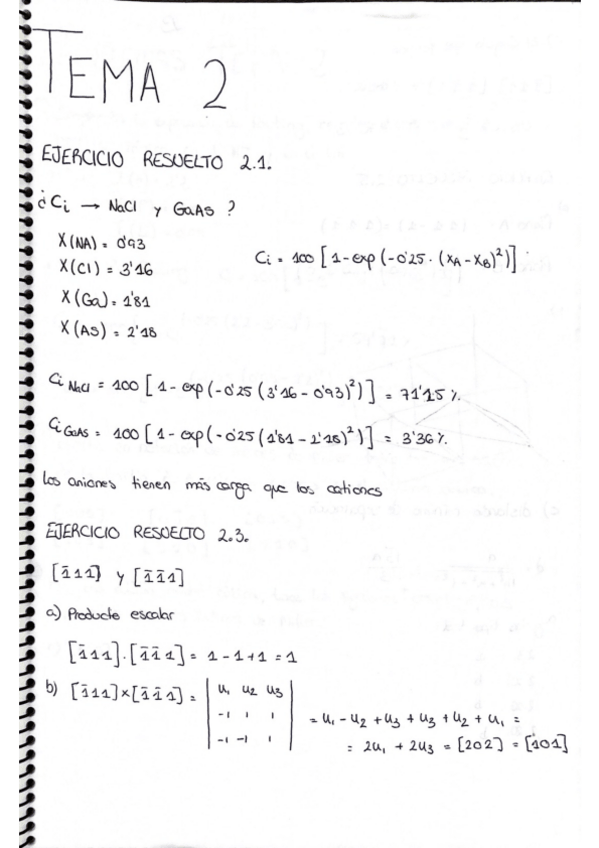 TEMA 2
EJERCICIO RESUELTO 2.1.
¿Ci → NaCl y GaAs ?
X(NA) = 0'93
X(Cl) = 3'16
Ci = 100 [1-exp(-0'25 · (XA-XB)²)]
X(Ga) = 1'81
X(AS) = 2'18
Ci NaCl = 100 [1-exp(-0'25(3'16-0'93)²)] = 71'15 %
Ci GaAs = 100 [1-exp(-0'25(1'81-2'18)²)] = 3'36 %
los aniones tienen más carga que los cationes
EJERCICIO RESUELTO 2.3.
[1̄11] y [1̄1̄1]
a) Producto escalar
[1̄11]·[1̄1̄1] = 1-1+1 = 1
b) [1̄11]×[1̄1̄1] = | u₁ u₂ u₃ |
| -1 1 1 |
| -1 -1 1 |
= u₁ - u₂ + u₃ + u₃ + u₂ + u₁ =
= 2u₁ + 2u₃ = [202] = [101]